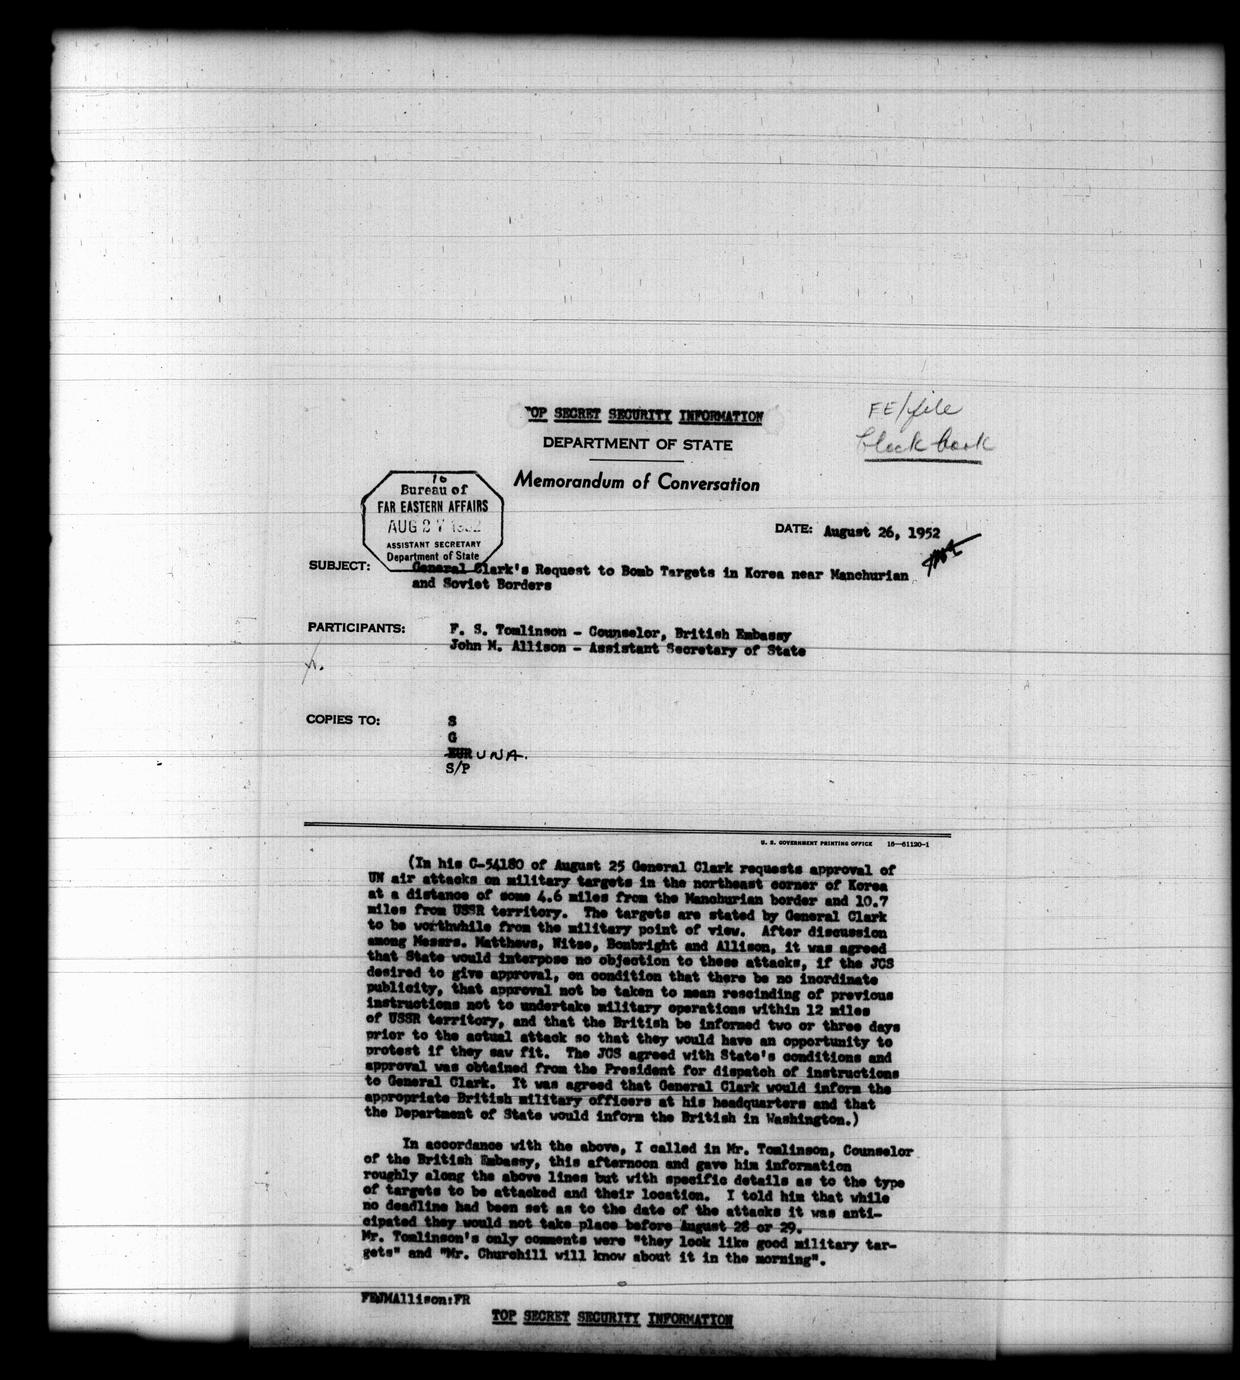 TOP SECRET SECURITY INFORMATION
FE/file
black book
DEPARTMENT OF STATE
Memorandum of Conversation
10
Bureau of
FAR EASTERN AFFAIRS
AUG 27 1952
ASSISTANT SECRETARY
Department of State
DATE: August 26, 1952
SUBJECT: General Clark's Request to Bomb Targets in Korea near Manchurian
and Soviet Borders
PARTICIPANTS: F. S. Tomlinson - Counselor, British Embassy
John M. Allison - Assistant Secretary of State
COPIES TO: S
G
EUR UNA.
S/P
U. S. GOVERNMENT PRINTING OFFICE 16—61120-1
(In his C-54180 of August 25 General Clark requests approval of
UN air attacks on military targets in the northeast corner of Korea
at a distance of some 4.6 miles from the Manchurian border and 10.7
miles from USSR territory. The targets are stated by General Clark
to be worthwhile from the military point of view. After discussion
among Messrs. Matthews, Nitze, Bonbright and Allison, it was agreed
that State would interpose no objection to these attacks, if the JCS
desired to give approval, on condition that there be no inordinate
publicity, that approval not be taken to mean rescinding of previous
instructions not to undertake military operations within 12 miles
of USSR territory, and that the British be informed two or three days
prior to the actual attack so that they would have an opportunity to
protest if they saw fit. The JCS agreed with State's conditions and
approval was obtained from the President for dispatch of instructions
to General Clark. It was agreed that General Clark would inform the
appropriate British military officers at his headquarters and that
the Department of State would inform the British in Washington.)
In accordance with the above, I called in Mr. Tomlinson, Counselor
of the British Embassy, this afternoon and gave him information
roughly along the above lines but with specific details as to the type
of targets to be attacked and their location. I told him that while
no deadline had been set as to the date of the attacks it was anti-
cipated they would not take place before August 28 or 29.
Mr. Tomlinson's only comments were "they look like good military tar-
gets" and "Mr. Churchill will know about it in the morning".
FE:JMAllison:FR
TOP SECRET SECURITY INFORMATION